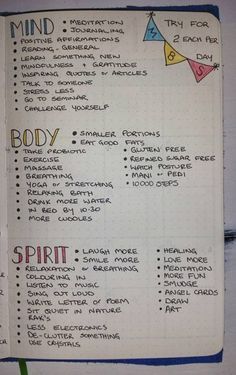 MIND
• MEDITATION
• JOURNALING
• POSITIVE AFFIRMATIONS
• READING - GENERAL
• LEARN SOMETHING NEW
• MINDFULNESS + GRATITUDE
• INSPIRING QUOTES OR ARTICLES
• TALK TO SOMEONE
• STRESS LESS
• GO TO SEMINAR
• CHALLENGE YOURSELF
M B S
TRY FOR
2 EACH PER
DAY
BODY
• SMALLER PORTIONS
• EAT GOOD FATS
• TAKE PROBIOTIC
• EXERCISE
• MASSAGE
• BREATHING
• YOGA OR STRETCHING
• RELAXING BATH
• DRINK MORE WATER
• IN BED BY 10:30
• MORE CUDDLES
• GLUTEN FREE
• REFINED SUGAR FREE
• WATCH POSTURE
• MANI OR PEDI
• 10000 STEPS
SPIRIT
• LAUGH MORE
• SMILE MORE
• RELAXATION OR BREATHING
• COLOURING IN
• LISTEN TO MUSIC
• SING OUT LOUD
• WRITE LETTER OR POEM
• SIT QUIET IN NATURE
• RAK'S
• LESS ELECTRONICS
• DE-CLUTTER SOMETHING
• USE CRYSTALS
• HEALING
• LOVE MORE
• MEDITATION
• MORE FUN
• SMUDGE
• ANGEL CARDS
• DRAW
• ART